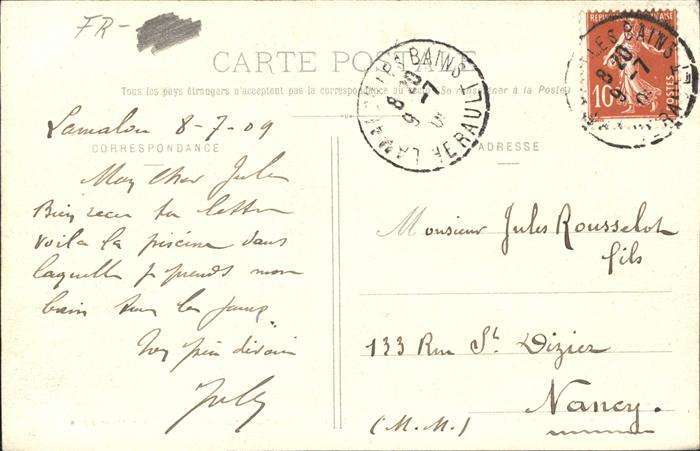 FR-
CARTE POSTALE
Tous les pays étrangers n'acceptent pas la correspondance au Se renseigner à la Poste
Lamalou 8-7-09
CORRESPONDANCE
Mon Cher Jules
Bien reçu ta lettre
voila la piscine dans
laquelle je prends mon
bain tous les jours
ADRESSE
Monsieur Jules Rousselot
fils
133 Rue St. Dizier
Nancy.
(M.M.)
LAMALOU-LES-BAINS
HERAULT
8-7
09
10
POSTES